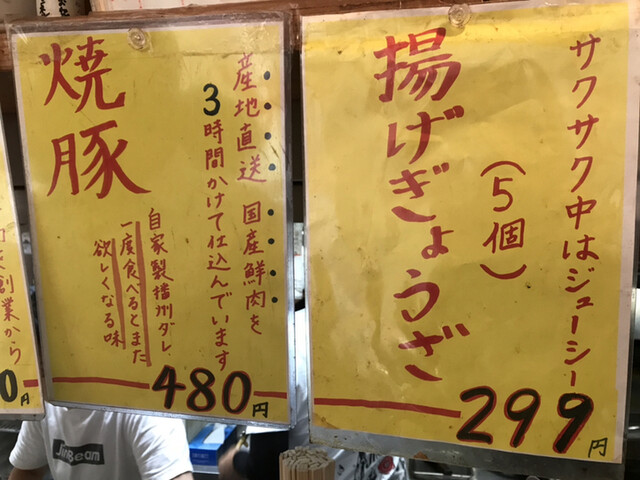 サクサク中はジューシー
揚げぎょうざ
(5個)
299円
産地直送 国産鮮肉を
3時間かけて仕込んでいます
焼豚
自家製播州ダレ
一度食べるとまた
欲しくなる味
480円
創業から
0円
Jim Beam